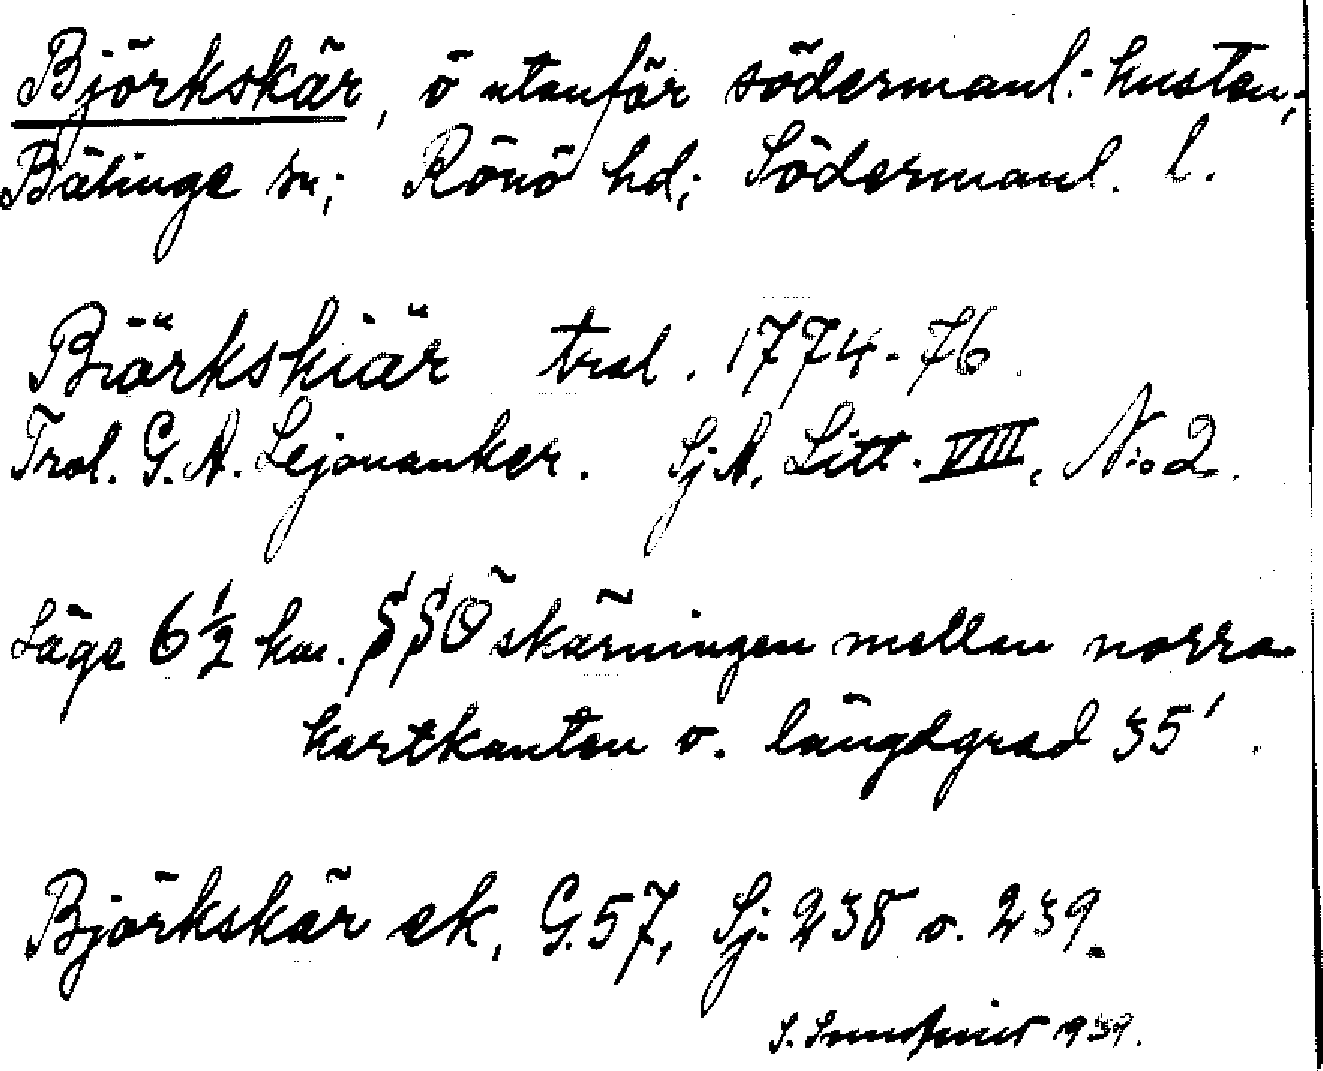 Björkskär, ö utanför södermanl. kusten;
Bälinge sn; Rönö hd; Södermanl. l.
Biörkskiär trol. 1774-76.
Trol. G. A. Lejonanker. Sj A, Litt. VIII, No 2.
Läge 6 1/2 km. SSÖ skärningen mellan norra
kartkanten o. längdgrad 35'.
Björkskär ek, G. 57, Sj. 238 o. 239.
S. 1939.